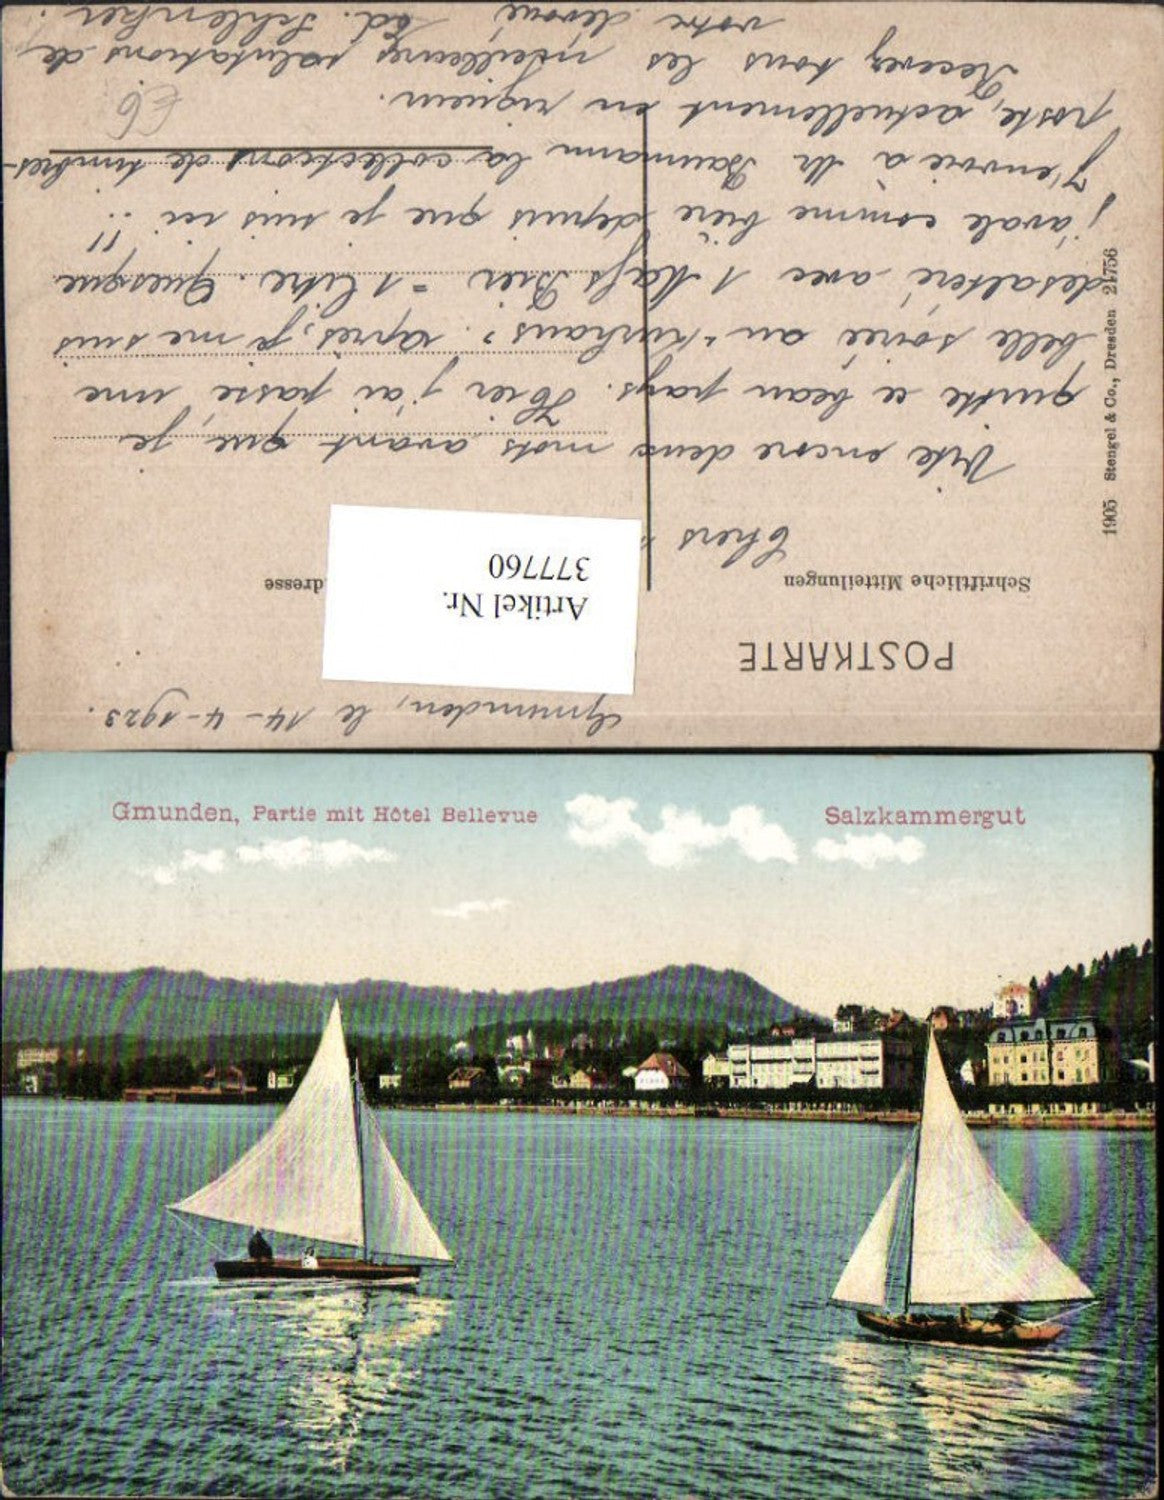 Gmunden, le 14-4-1923.
POSTKARTE
Schriftliche Mitteilungen
dresse
Artikel Nr.
377760
Chers
Vite encore deux mots avant que je
quitte ce beau pays. Hier j'ai passé une
belle soirée au "Kurhaus". Après, je me suis
desalteré avec 1 Mass Bier = 1 litre. Quesque
j'avale comme bière depuis que je suis ici !!
J'envoie à Mr Baumann la collections de timbres-
poste, actuellement en vigueur.
Recevez tous les meilleures salutations de
votre dévoué Ad. Schlenker.
£6
1905 Stengel & Co., Dresden 21756
Gmunden, Partie mit Hôtel Bellevue
Salzkammergut